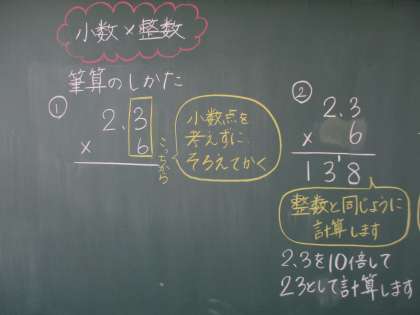 小数×整数
筆算のしかた
①
2.3
× 6
こっちから
小数点を
考えずに
そろえてかく
②
2.3
× 6
138
整数と同じように
計算します
2.3を10倍して
23として計算します